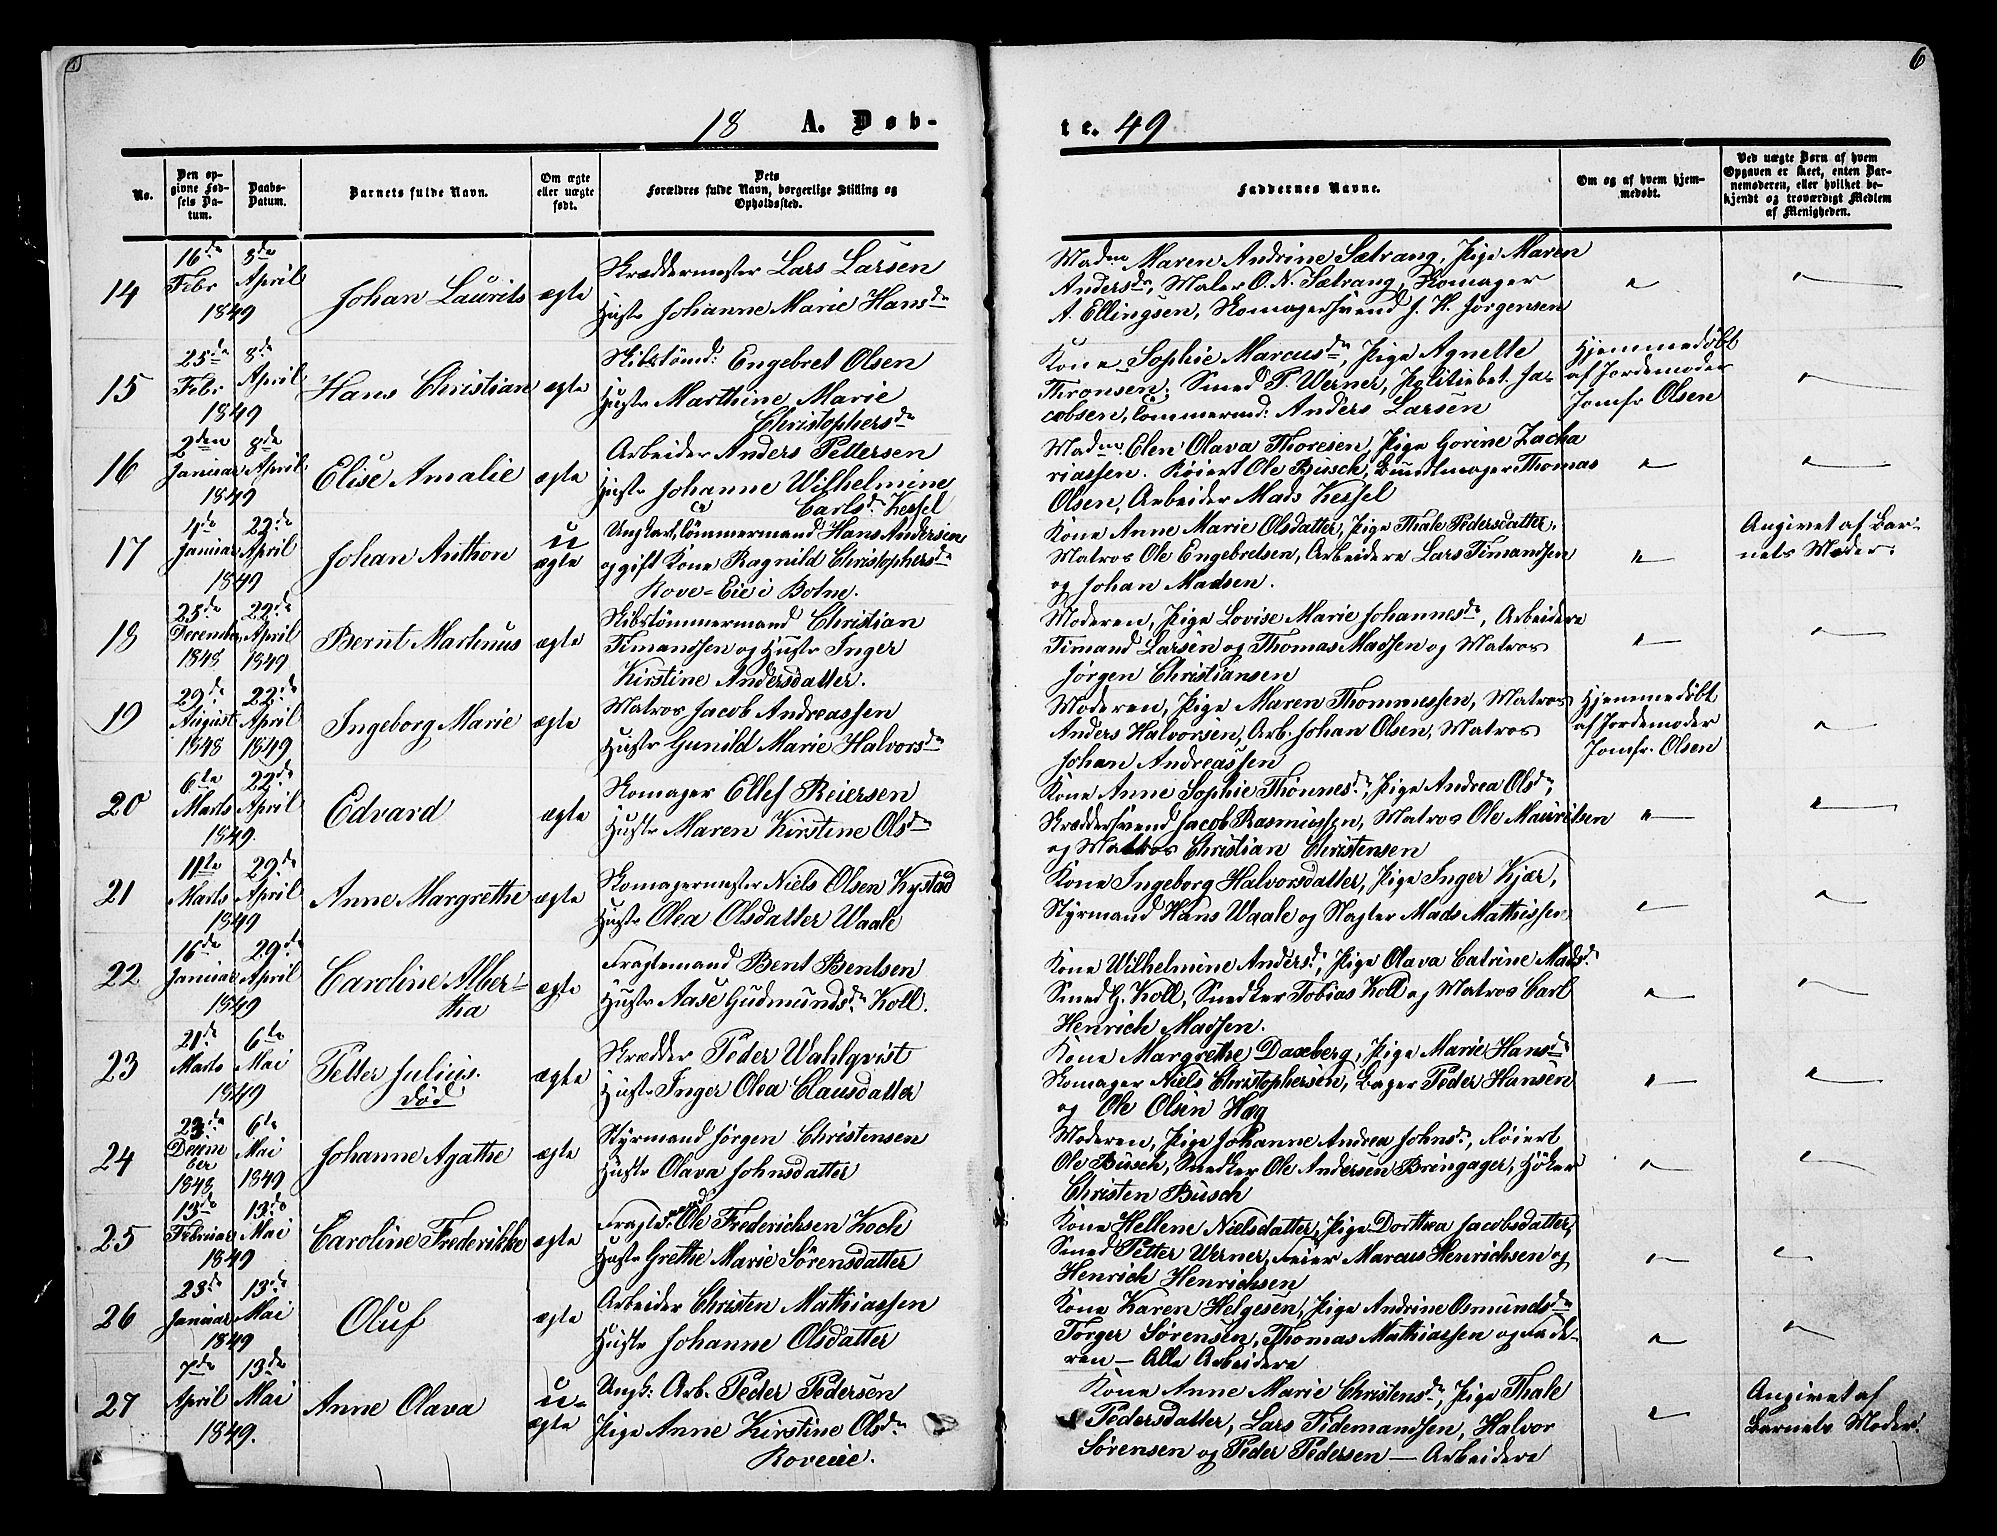 6
18 A. Døb-
te. 49
No.
Den op-
givne Fød-
sels Da-
tum.
Daabs-
Datum.
Barnets fulde Navn.
Om ægte
eller uægte
født.
Dets
Forældres fulde Navn, borgerlige Stilling og
Opholdssted.
Faddernes Navne.
Om og af hvem hjem-
medøbt.
Ved uægte Børn af hvem
Opgaven er skeet, enten Bar-
nemoderen, eller hvilket be-
kjendt og troværdigt Medlem
af Menigheden.
14
16de
Febr
1849
8de
April
Johan Laurits
ægte
Skræddermester Lars Larsen
Hustr Johanne Marie Hansdr
Madme Maren Andrine Sætrang, Pige Maren
Andersdr, Maler O. N. Sætrang, Skomager
A. Ellingsen, Skomagersvend J. H. Jørgensen
"
"
15
25de
Febr
1849
8de
April
Hans Christian
ægte
Skibstømd: Engebret Olsen
Hustr Marthine Marie
Christophersdr
Kone Sophie Marcusdr, Pige Agnette
Thronsen, Smed P. Werner, Politiebet. Ja-
cobsen, Tømmermd: Anders Larsen
Hjemmedøbt
af Jordemoder
Jomfr Olsen
"
16
2den
Januar
1849
8de
April
Elise Amalie
ægte
Arbeider Anders Pettersen
Hustr Johanne Wilhelmine
Carlsdr Kessel
Madme Elen Olava Thoresen, Pige Gorine Zacha
riassen. Røiert Ole Busch, Bundtmager Thomas
Olsen, Arbeider Mads Kessel
"
"
17
4de
Januar
1849
22de
April
Johan Anthon
u
ægte
Ungkarl, Tømmermand Hans Andersen
og gift Kone Ragnild Christophersdr
Rove-Eie i Botne.
Kone Anne Marie Olsdatter, Pige Thale Pedersdatter,
Matros Ole Engebretsen, Arbeidere Lars Timandsen
og Johan Madsen.
"
Angivet af Bar-
nets Moder.
18
25de
December
1848
22de
April
1849
Bernt Martinus
ægte
Skibstømmermand Christian
Timandsen og Hustr Inger
Kirstine Andersdatter.
Moderen, Pige Lovise Marie Johannesdr, Arbeidere
Timand Larsen og Thomas Madsen og Matros
Jørgen Christiansen
"
"
19
29de
August
1848
22de
April
1849
Ingeborg Marie
ægte
Matros Jacob Andreassen
Hustr Gunild Marie Halvorsdr
Moderen, Pige Maren Thommessen, Matros
Anders Halvorsen, Arb. Johan Olsen, Matros
Johan Andreassen
Hjemmedøbt
af Jordemoder
Jomfr. Olsen
"
20
6te
Marts
1849.
22de
April
Edvard
ægte
Skomager Ellef Reiersen
Hustr Maren Kirstine Olsdr
Kone Anne Sophie Thønnesdr, Pige Andrea Olsdr,
Skræddersvend Jacob Rasmussen, Matros Ole Mauritsen
og Matros Christian Christensen
"
"
21
11te
Marts
1849
29de
April
Anne Margrethe
ægte
Skomagermester Niels Olsen Kystad
Hustr Olea Olsdatter Waale
Kone Ingeborg Halvorsdatter, Pige Inger Kjær,
Styrmand Hans Waale og Slagter Mads Mathissen
"
"
22
16de
Januar
1849
29de
April
Caroline Alber-
tha
ægte
Fragtemand Bent Bentsen
Hustr Aase Gudmundsdr Koll.
Kone Wilhelmine Andersdr, Pige Olava Catrine Madsdr.
Smed G. Koll, Snedker Tobias Koll og Matros Carl
Henrich Madsen.
"
"
23
21de
Marts
1849
6te
Mai
Petter Julius.
død
ægte
Skrædder Peder Wahlqvist
Hustr Inger Olea Clausdatter
Kone Margrethe Daxberg, Pige Marie Hansdr
Skomager Niels Christophersen, Bager Peder Hansen
og Ole Olsen Hæg
"
"
24
23de
Decem
ber
1848
6te
Mai
1849
Johanne Agathe
ægte
Styrmand Jørgen Christensen
Hustr Olava Johnsdatter
Moderen, Pige Johanne Andrea Johnsdr, Røiert
Ole Busch, Snedker Ole Andersen Bringager, Høker
Christen Busch
"
"
25
13de
Februar
1849
13de
Mai
Caroline Frederikke
ægte
Fragtemand Ole Frederichsen Koch
Hustr Grethe Marie Sørensdatter
Kone Hellene Nielsdatter, Pige Dorthea Jacobsdatter,
Smed Petter Werner, Feier Marcus Henrichsen og
Henrich Henrichsen
"
"
26
23de
Januar
1849
13de
Mai
Oluf
ægte
Arbeider Christen Mathiassen
Hustr Johanne Olsdatter
Kone Karen Helgesen, Pige Andrine Osmundsdr
Torger Sørensen, Thomas Mathiassen og Fade-
ren - Alle Arbeidere
"
"
27
7de
April
1849.
13de
Mai
Anne Olava
u-
ægte
Ungk: Arb. Peder Pedersen
Pige Anne Kirstine Olsdr
Roveeie.
Kone Anne Marie Christensdr, Pige Thale
Pedersdatter, Lars Tidemandsen, Halvor
Sørensen og Peder Pedersen - Arbeidere
"
Angivet af
Barnets Moder.